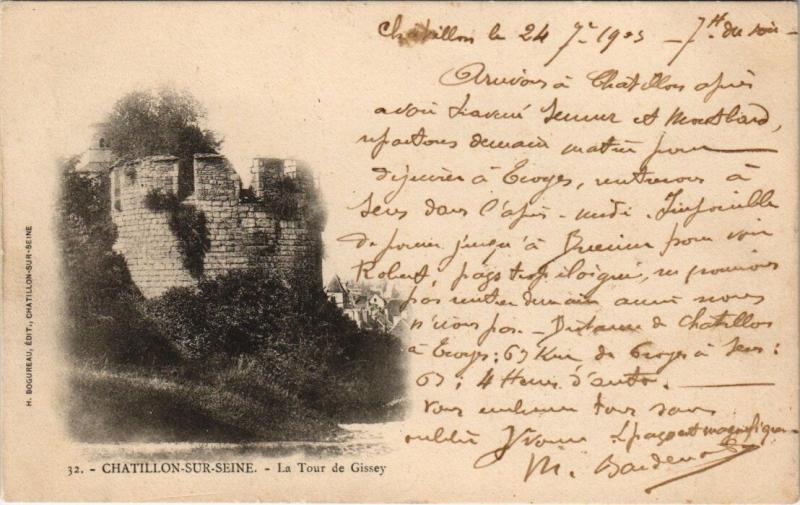 Chatillon le 24 7re 1903 - 7H du soir -
Arrivons à Chatillon après
avoir traversé Semur et Montbard,
repartons demain matin pour
déjeuner à Troyes, rentrerons à
Sens dans l'après-midi. Impossible
de pousser jusqu'à pour voir
Robert, pays trop éloigné, ne pouvons
pas rentrer demain aussi nous
n'irons pas. - Distance de Chatillon
à Troyes: 67 Km de Troyes à Sens:
67; 4 Heures d'auto.
Vous embrasse tous sans
oublier Yvonne Le pays est magnifique
M.
H. BOGUREAU, ÉDIT., CHATILLON-SUR-SEINE
32. - CHATILLON-SUR-SEINE. - La Tour de Gissey